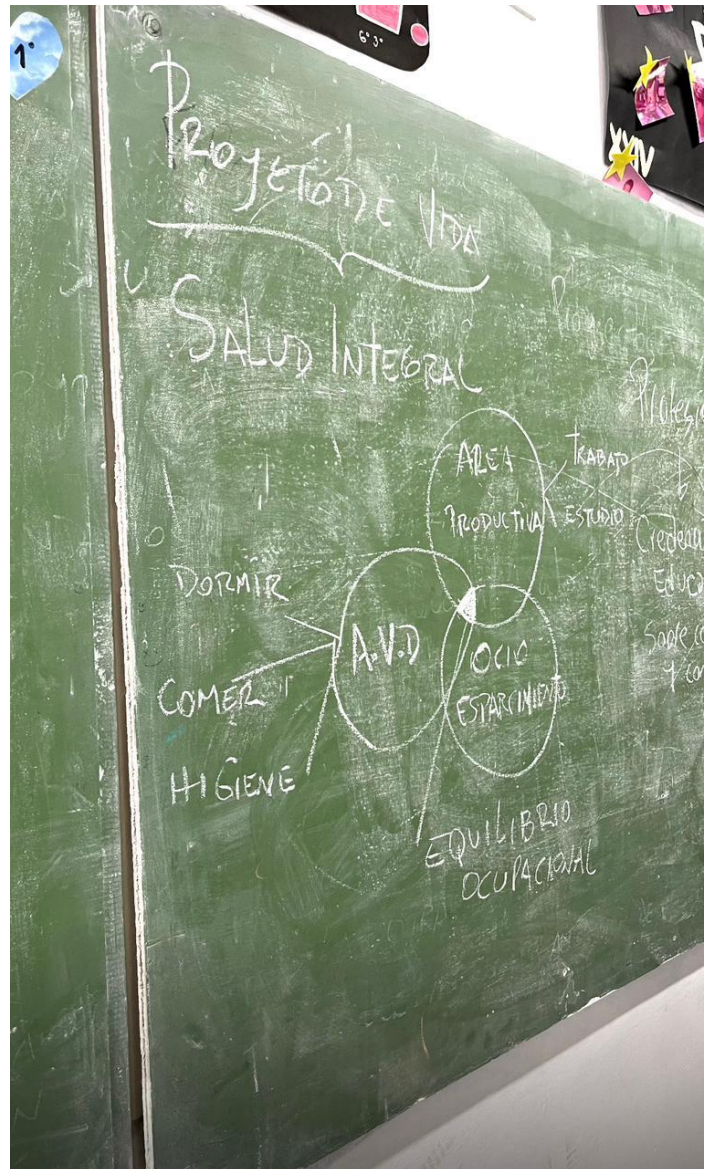 1°
6° 3°
PROYETO DE VIDA
SALUD INTEGRAL
AREA
PRODUCTIVA
TRABAJO
ESTUDIO
DORMIR
COMER
HIGIENE
A.V.D
OCIO
ESPARCIMIENTO
EQUILIBRIO
OCUPACIONAL
Educ
Sobre
y con